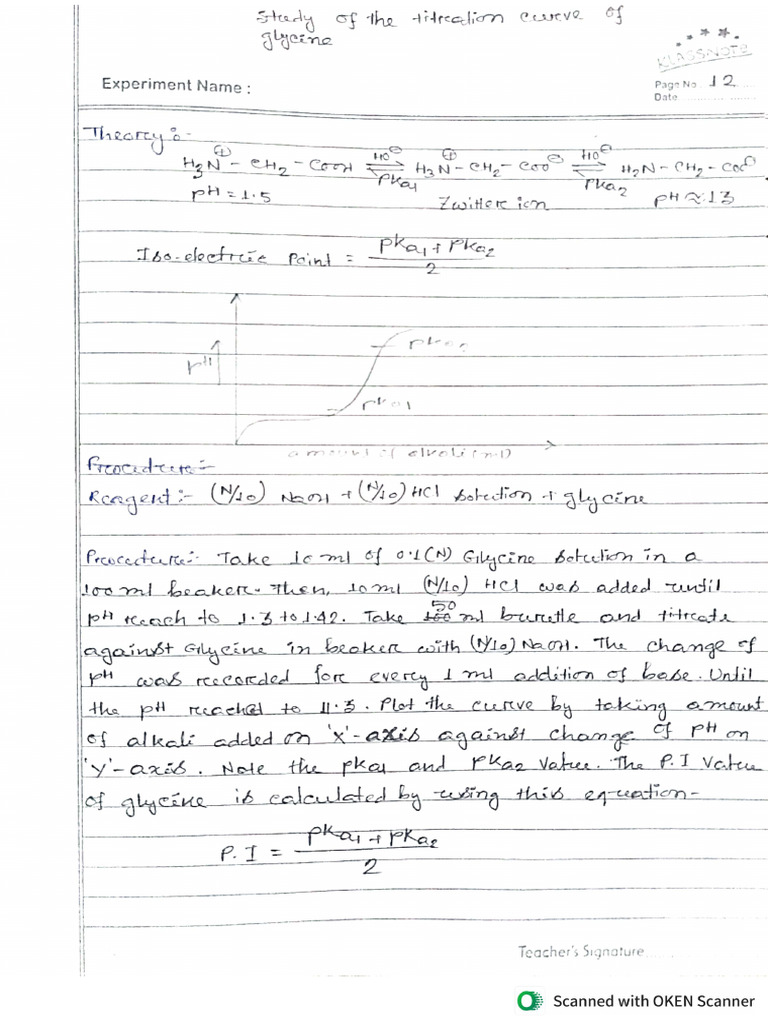 Study of the titreation curve of
glycine
KLASSNOTE
Experiment Name :
Page No. 12
Date
Theory :-
H₃N⊕ - CH₂ - COOH ⇌ H₃N⊕ - CH₂ - COO⊖ ⇌ H₂N - CH₂ - COO⊖
HO⊖ HO⊖
PKa1 PKa2
pH = 1.5 Zwitter ion pH ≈ 13
Iso-electric Point = PKa1 + PKa2 / 2
pH
pka2
pka1
amount of alkali (ml)
Procedure :-
Reagent :- (N/10) NaOH + (N/10) HCl Solution + glycine
Procedure :- Take 10 ml of 0.1(N) Glycine Solution in a
100 ml beaker. Then, 10 ml (N/10) HCl was added until
pH reach to 1.3 to 1.42. Take 50 ml burette and titreate
against Glycine in beaker with (N/10) NaOH. The change of
pH was recorded for every 1 ml addition of base. Until
the pH reached to 11.3. Plot the curve by taking amount
of alkali added on 'X'-axis against change of pH on
'Y'-axis. Note the pka1 and pka2 value. The P.I value
of glycine is calculated by using this equation-
P.I = PKa1 + PKa2 / 2
Teacher's Signature
Scanned with OKEN Scanner